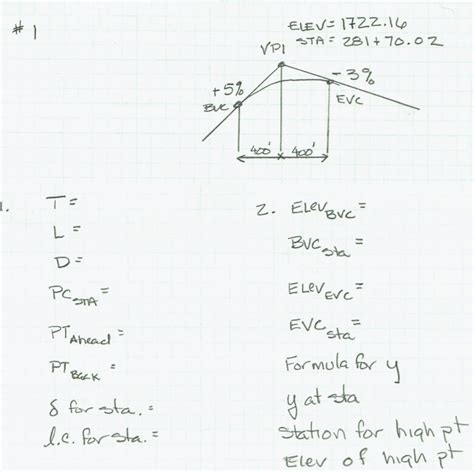 # 1
ELEV = 1722.16
STA = 281+70.02
VPI
+5%
- 3%
BVC
EVC
400'
400'
1.
T =
L =
D =
PC STA =
PT Ahead =
PT Back =
δ for sta. =
l.c. for sta. =
2. Elev BVC =
BVC sta =
Elev EVC =
EVC sta =
Formula for y
y at sta
Station for high pt
Elev of high pt